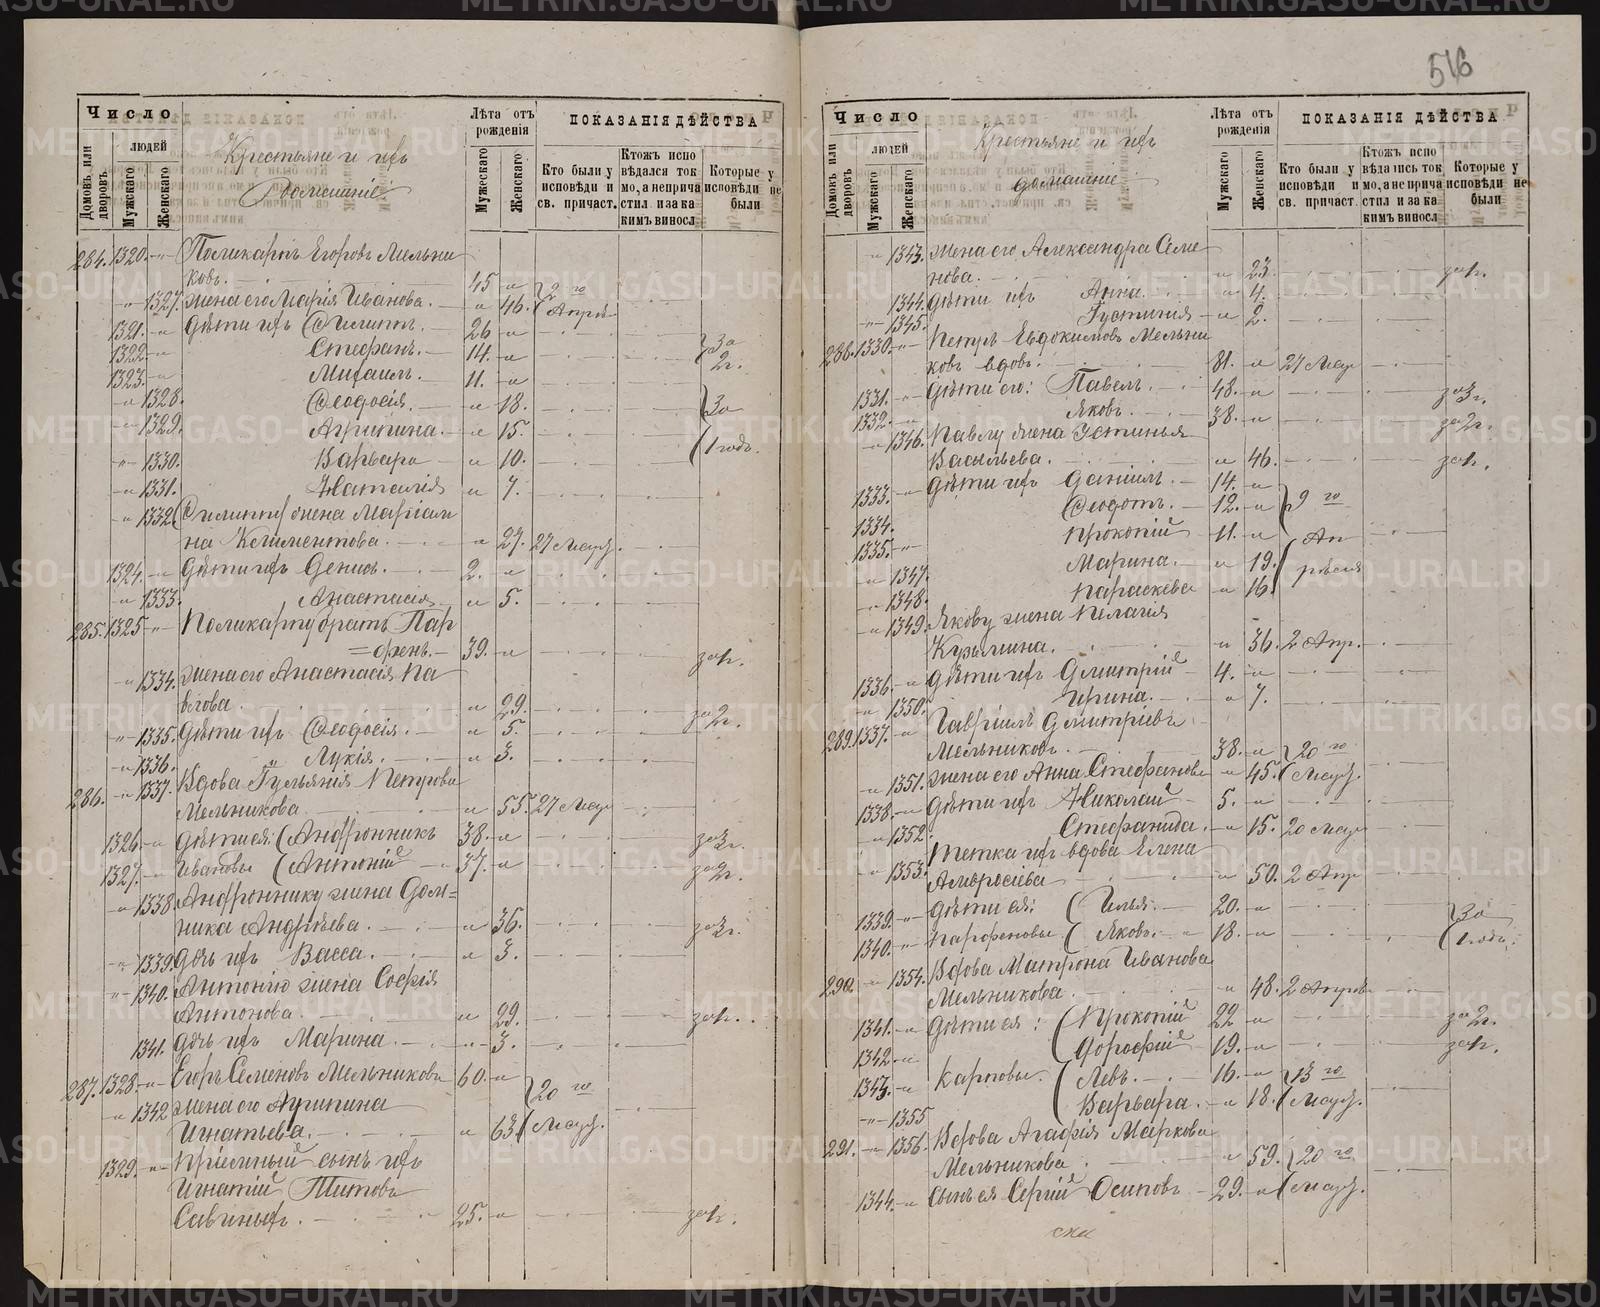 516
Число
людей
Домовъ или дворовъ.
Мужескаго
Женскаго
Крестьяне и ихъ
домашніе
Лѣта отъ рожденія
Мужескаго
Женскаго
ПОКАЗАНІЯ ДѢЙСТВА
Кто были у исповѣди и св. причаст.
Ктожъ исповѣдался токмо, а непричастил и за какимъ виносл
Которые у исповѣди не были
284. 1320. Поликарпъ Егоровъ Мельни
ковъ. 45
1327. жена его Марія Иванова. 46. 2го Апрѣ
1321. дѣти ихъ Филиппъ. 26
1322. Стефанъ. 14. За 2г.
1323. Михаилъ. 11.
1328. Феодосія. 18. За
1329. Агрипина. 15. 1 годъ.
1330. Варвара 10.
1331. Наталія 7.
1332. Филиппу жена Маріам
на Климентова. 27. 27 Мар.
1324. дѣти ихъ Денисъ. 2.
1333. Анастасія 5.
285. 1325 Поликарпу братъ Пар
=фенъ. 39. за 1г.
1334. жена его Анастасія Па
влова. 29. за 2г.
1335. дѣти ихъ Феодосія. 5.
1336. Лукія. 3.
286. 1337. Вдова Іульянія Петрова
Мельникова 55. 27 Мар
1326. дѣти ея: Андронникъ 38. за 3г.
1327. Ивановы Антоній 37. за 2г.
1338. Андроннику жена Дом=
ника Андрѣева. 36. за 3г.
1339. дочь ихъ Васса. 3.
1340. Антонію жена Софія
Антонова. 29. за 1г.
1341. дочь ихъ Марина. 3.
287. 1328. Егоръ Семеновъ Мельниковъ 60. 20го
1342 жена его Агрипина
Игнатьева. 63. Мар.
1329. Пріемный сынъ ихъ
Игнатій Титовъ
Савиныхъ. 25. за 1г.
Число
людей
Домовъ или дворовъ.
Мужескаго
Женскаго
Крестьяне и ихъ
домашніе
Лѣта отъ рожденія
Мужескаго
Женскаго
ПОКАЗАНІЯ ДѢЙСТВА
Кто были у исповѣди и св. причаст.
Ктожъ исповѣдался токмо, а непричастил и за какимъ виносл
Которые у исповѣди не были
1343. жена его Александра Семе
нова. 23. за 1г.
1344. дѣти ихъ Анна. 4.
1345. Іустинія 2.
288. 1330. Петръ Евдокимовъ Мельни
ковъ вдовъ. 81. 27 Мар
1331. дѣти его: Павелъ. 48. за 3г.
1332. Яковъ. 38. за 2г.
1346. Павлу жена Устинья
Васильева. 46. за 1г.
1333. дѣти ихъ Даніилъ. 14.
Феодотъ. 12. 9го
1334. Прокопій 11. Ап
1335.
1347. Марина. 19. рѣля
1348. Параскева 16.
1349. Якову жена Пелагія
Кузьмина. 36. 2 Апр.
1336. дѣти ихъ Димитрій 4.
1350. Ирина. 7.
289. 1337. Гавріилъ Дмитріевъ
Мельниковъ. 38. 20го
1351. жена его Анна Стефанова 45. Мар.
1338. дѣти ихъ Николай 5.
1352. Стефанида. 15. 20 Мар
1353. тетка ихъ вдова Елена
Амвросіева 50. 2 Апр
1339. дѣти ея: Илья. 20. За
1340. Парфеновы Яковъ. 18. 1 годъ.
290. 1354. Вдова Матрона Иванова
Мельникова. 48. 2 Апрѣ
1341. дѣти ея: Прокопій 22 за 2г.
1342. Дорофій 19. за 1г.
1343. Карповы. Левъ. 16. 13го
1355 Варвара. 18. Мар.
291. 1356. Вдова Агафія Маркова
Мельникова 59. 20го
1344. сынъ ея Сергій Осиповъ 29. Мар.
METRIKI.GASO-URAL.RU